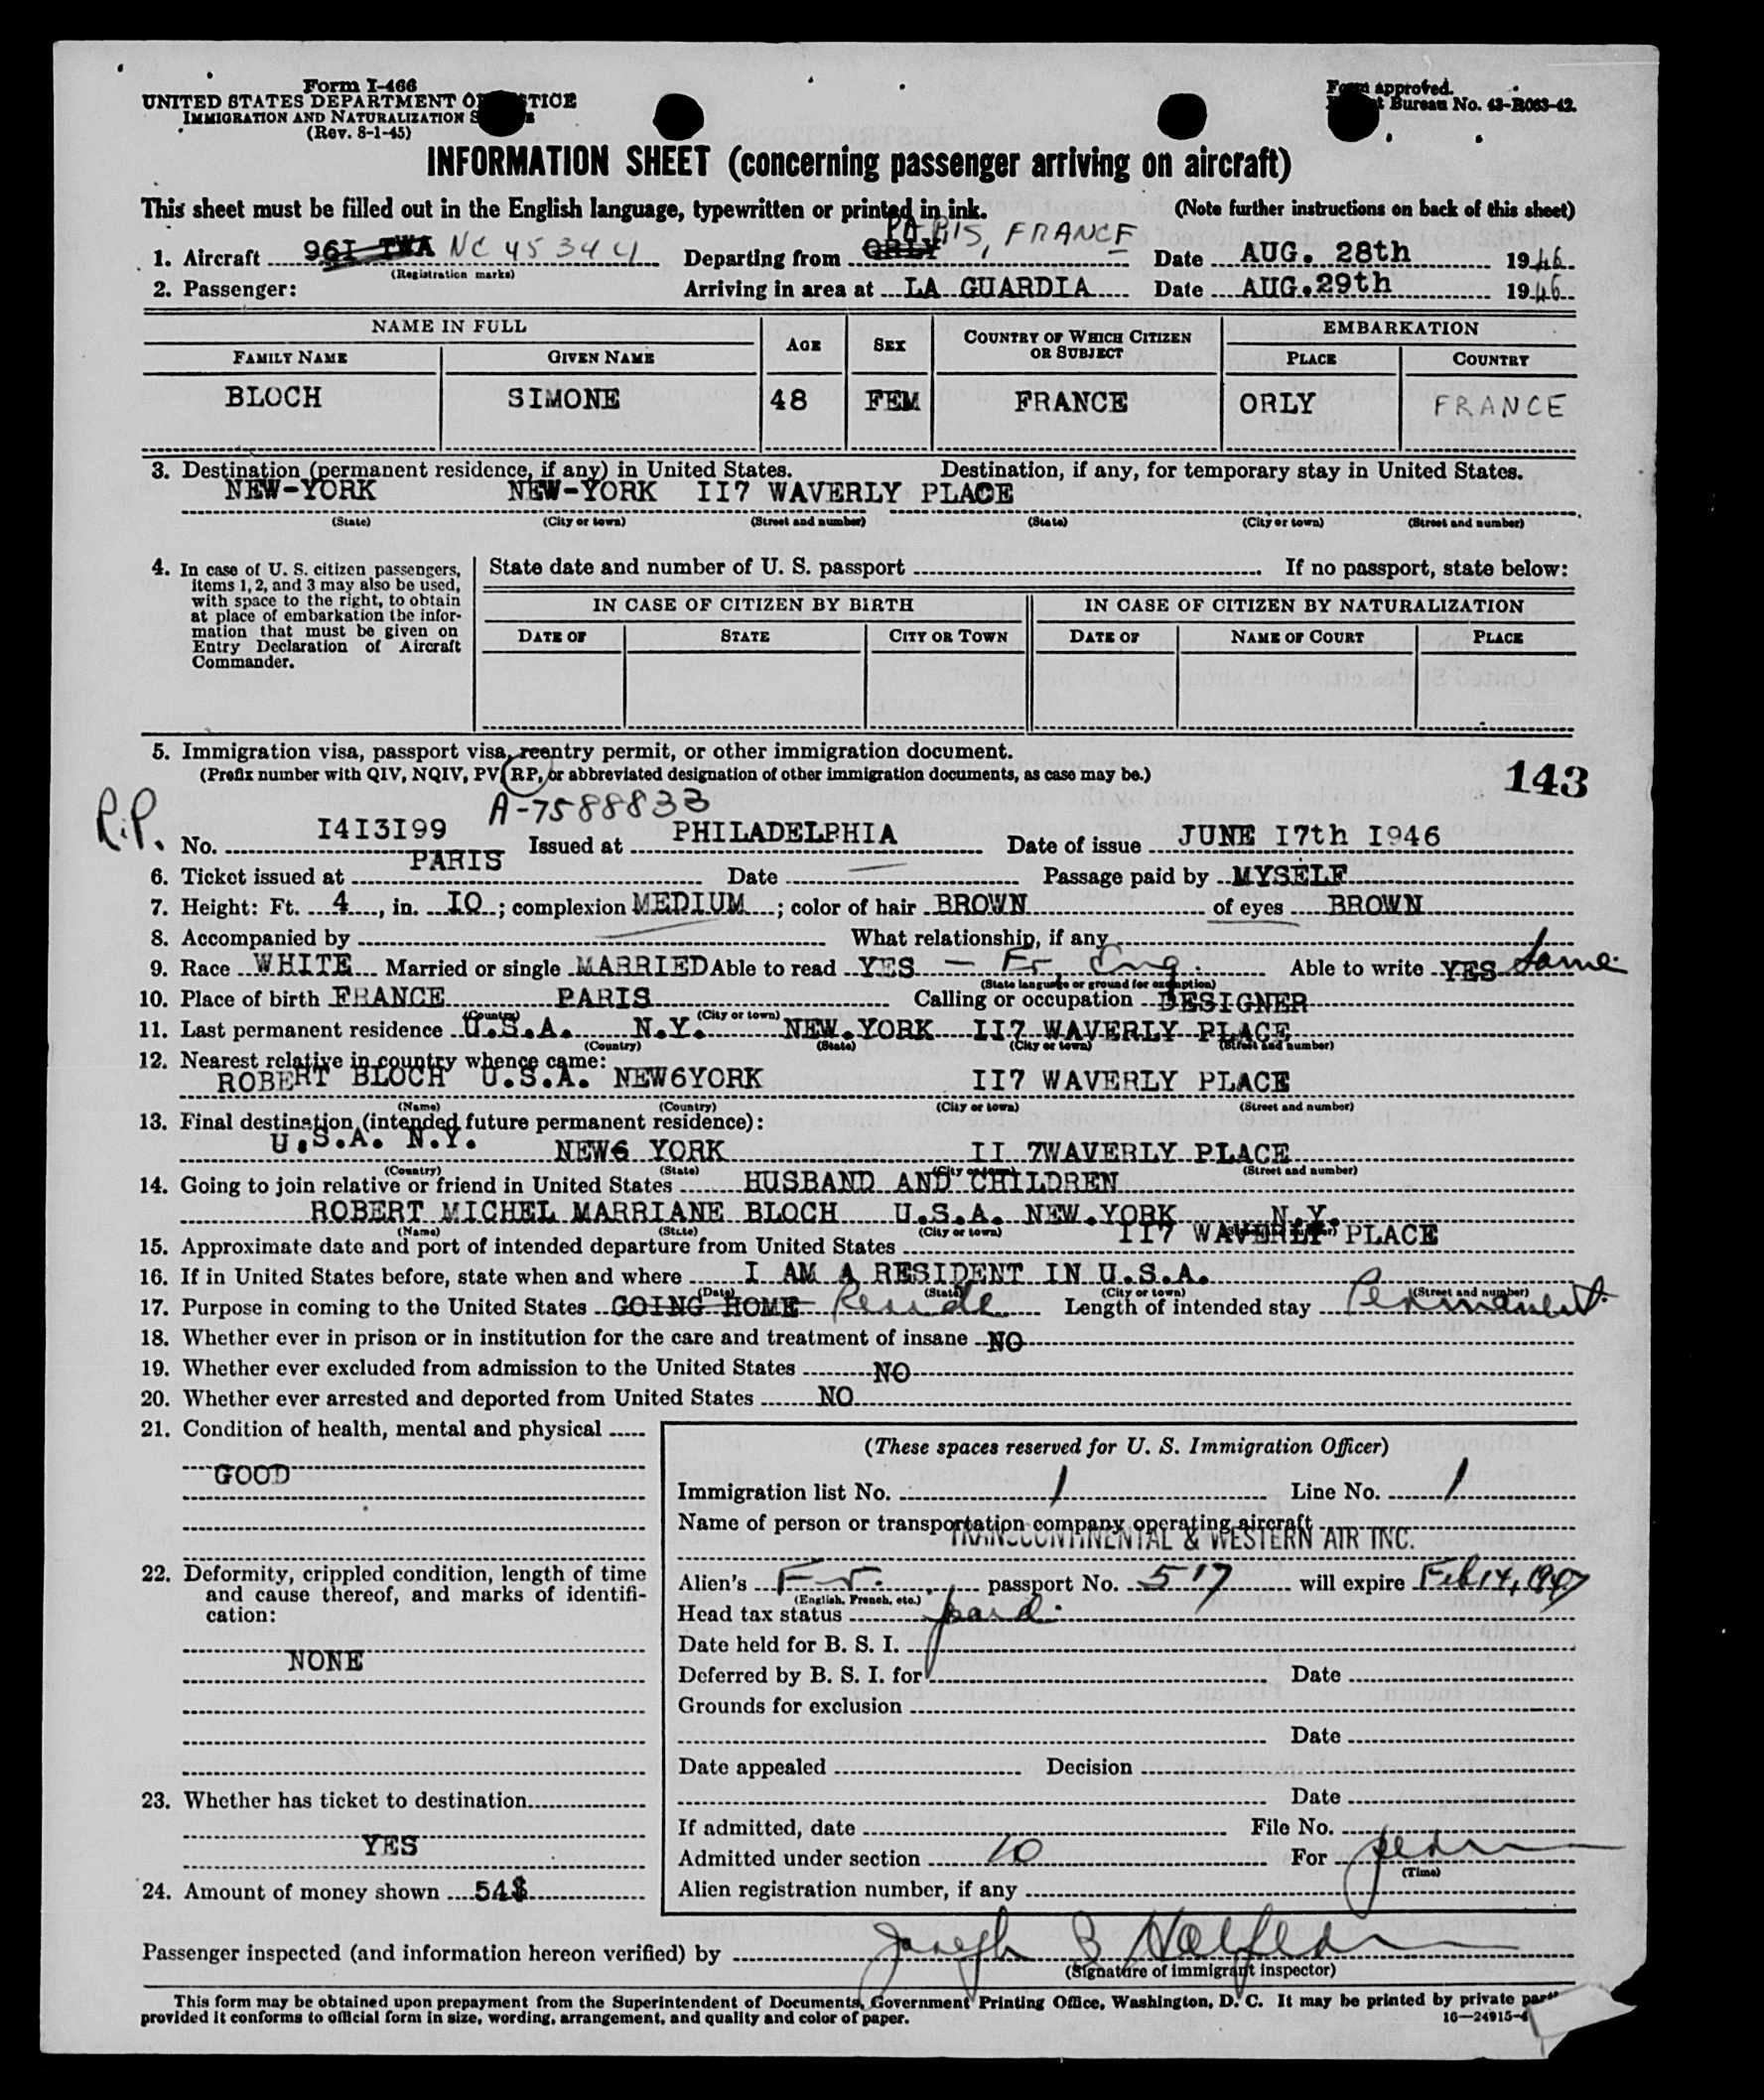 Form I-466
UNITED STATES DEPARTMENT OF JUSTICE
IMMIGRATION AND NATURALIZATION S
(Rev. 8-1-45)
Form approved.
t Bureau No. 43-R063-42.
INFORMATION SHEET (concerning passenger arriving on aircraft)
This sheet must be filled out in the English language, typewritten or printed in ink. (Note further instructions on back of this sheet)
1. Aircraft 96I TWA NC 45344 Departing from ORLY PARIS, FRANCE Date AUG. 28th 1946
(Registration marks)
2. Passenger: Arriving in area at LA GUARDIA Date AUG.29th 1946
NAME IN FULL AGE SEX COUNTRY OF WHICH CITIZEN OR SUBJECT EMBARKATION
FAMILY NAME GIVEN NAME PLACE COUNTRY
BLOCH SIMONE 48 FEM FRANCE ORLY FRANCE
3. Destination (permanent residence, if any) in United States. Destination, if any, for temporary stay in United States.
NEW-YORK NEW-YORK II7 WAVERLY PLACE
(State) (City or town) (Street and number) (State) (City or town) (Street and number)
4. In case of U. S. citizen passengers,
items 1, 2, and 3 may also be used,
with space to the right, to obtain
at place of embarkation the infor-
mation that must be given on
Entry Declaration of Aircraft
Commander.
State date and number of U. S. passport If no passport, state below:
IN CASE OF CITIZEN BY BIRTH IN CASE OF CITIZEN BY NATURALIZATION
DATE OF STATE CITY OR TOWN DATE OF NAME OF COURT PLACE
5. Immigration visa, passport visa, reentry permit, or other immigration document.
(Prefix number with QIV, NQIV, PV, RP, or abbreviated designation of other immigration documents, as case may be.)
143
A-7588833
R.P. No. I4I3I99 Issued at PHILADELPHIA Date of issue JUNE I7th I946
6. Ticket issued at PARIS Date Passage paid by MYSELF
7. Height: Ft. 4, in. IO; complexion MEDIUM; color of hair BROWN of eyes BROWN
8. Accompanied by What relationship, if any
9. Race WHITE Married or single MARRIED Able to read YES — Fr, Eng. Able to write YES Same
(State language or ground for exemption)
10. Place of birth FRANCE PARIS Calling or occupation DESIGNER
(Country) (City or town)
11. Last permanent residence U.S.A. N.Y. NEW.YORK II7 WAVERLY PLACE
(Country) (State) (City or town) (Street and number)
12. Nearest relative in country whence came:
ROBERT BLOCH U.S.A. NEW6YORK II7 WAVERLY PLACE
(Name) (Country) (City or town) (Street and number)
13. Final destination (intended future permanent residence):
U.S.A. N.Y. NEW6 YORK II 7WAVERLY PLACE
(Country) (State) (City or town) (Street and number)
14. Going to join relative or friend in United States HUSBAND AND CHILDREN
ROBERT MICHEL MARRIANE BLOCH U.S.A. NEW.YORK N.Y.
(Name) (State) (City or town) (Street and number)
II7 WAVERLY PLACE
15. Approximate date and port of intended departure from United States
16. If in United States before, state when and where I AM A RESIDENT IN U.S.A.
(Date) (State) (City or town) (Street and number)
17. Purpose in coming to the United States GOING HOME Reside Length of intended stay Permanent
18. Whether ever in prison or in institution for the care and treatment of insane NO
19. Whether ever excluded from admission to the United States NO
20. Whether ever arrested and deported from United States NO
21. Condition of health, mental and physical
GOOD
22. Deformity, crippled condition, length of time
and cause thereof, and marks of identifi-
cation:
NONE
23. Whether has ticket to destination
YES
24. Amount of money shown 54$
(These spaces reserved for U. S. Immigration Officer)
Immigration list No. 1 Line No. 1
Name of person or transportation company operating aircraft
TRANSCONTINENTAL & WESTERN AIR INC.
Alien's Fr. passport No. 517 will expire Feb 14, 1947
(English, French, etc.)
Head tax status paid.
Date held for B. S. I.
Deferred by B. S. I. for Date
Grounds for exclusion
Date
Date appealed Decision
Date
If admitted, date File No.
Admitted under section 10 For perm
(Time)
Alien registration number, if any
Passenger inspected (and information hereon verified) by Joseph B
(Signature of immigrant inspector)
This form may be obtained upon prepayment from the Superintendent of Documents, Government Printing Office, Washington, D. C. It may be printed by private
provided it conforms to official form in size, wording, arrangement, and quality and color of paper. 16—24915-